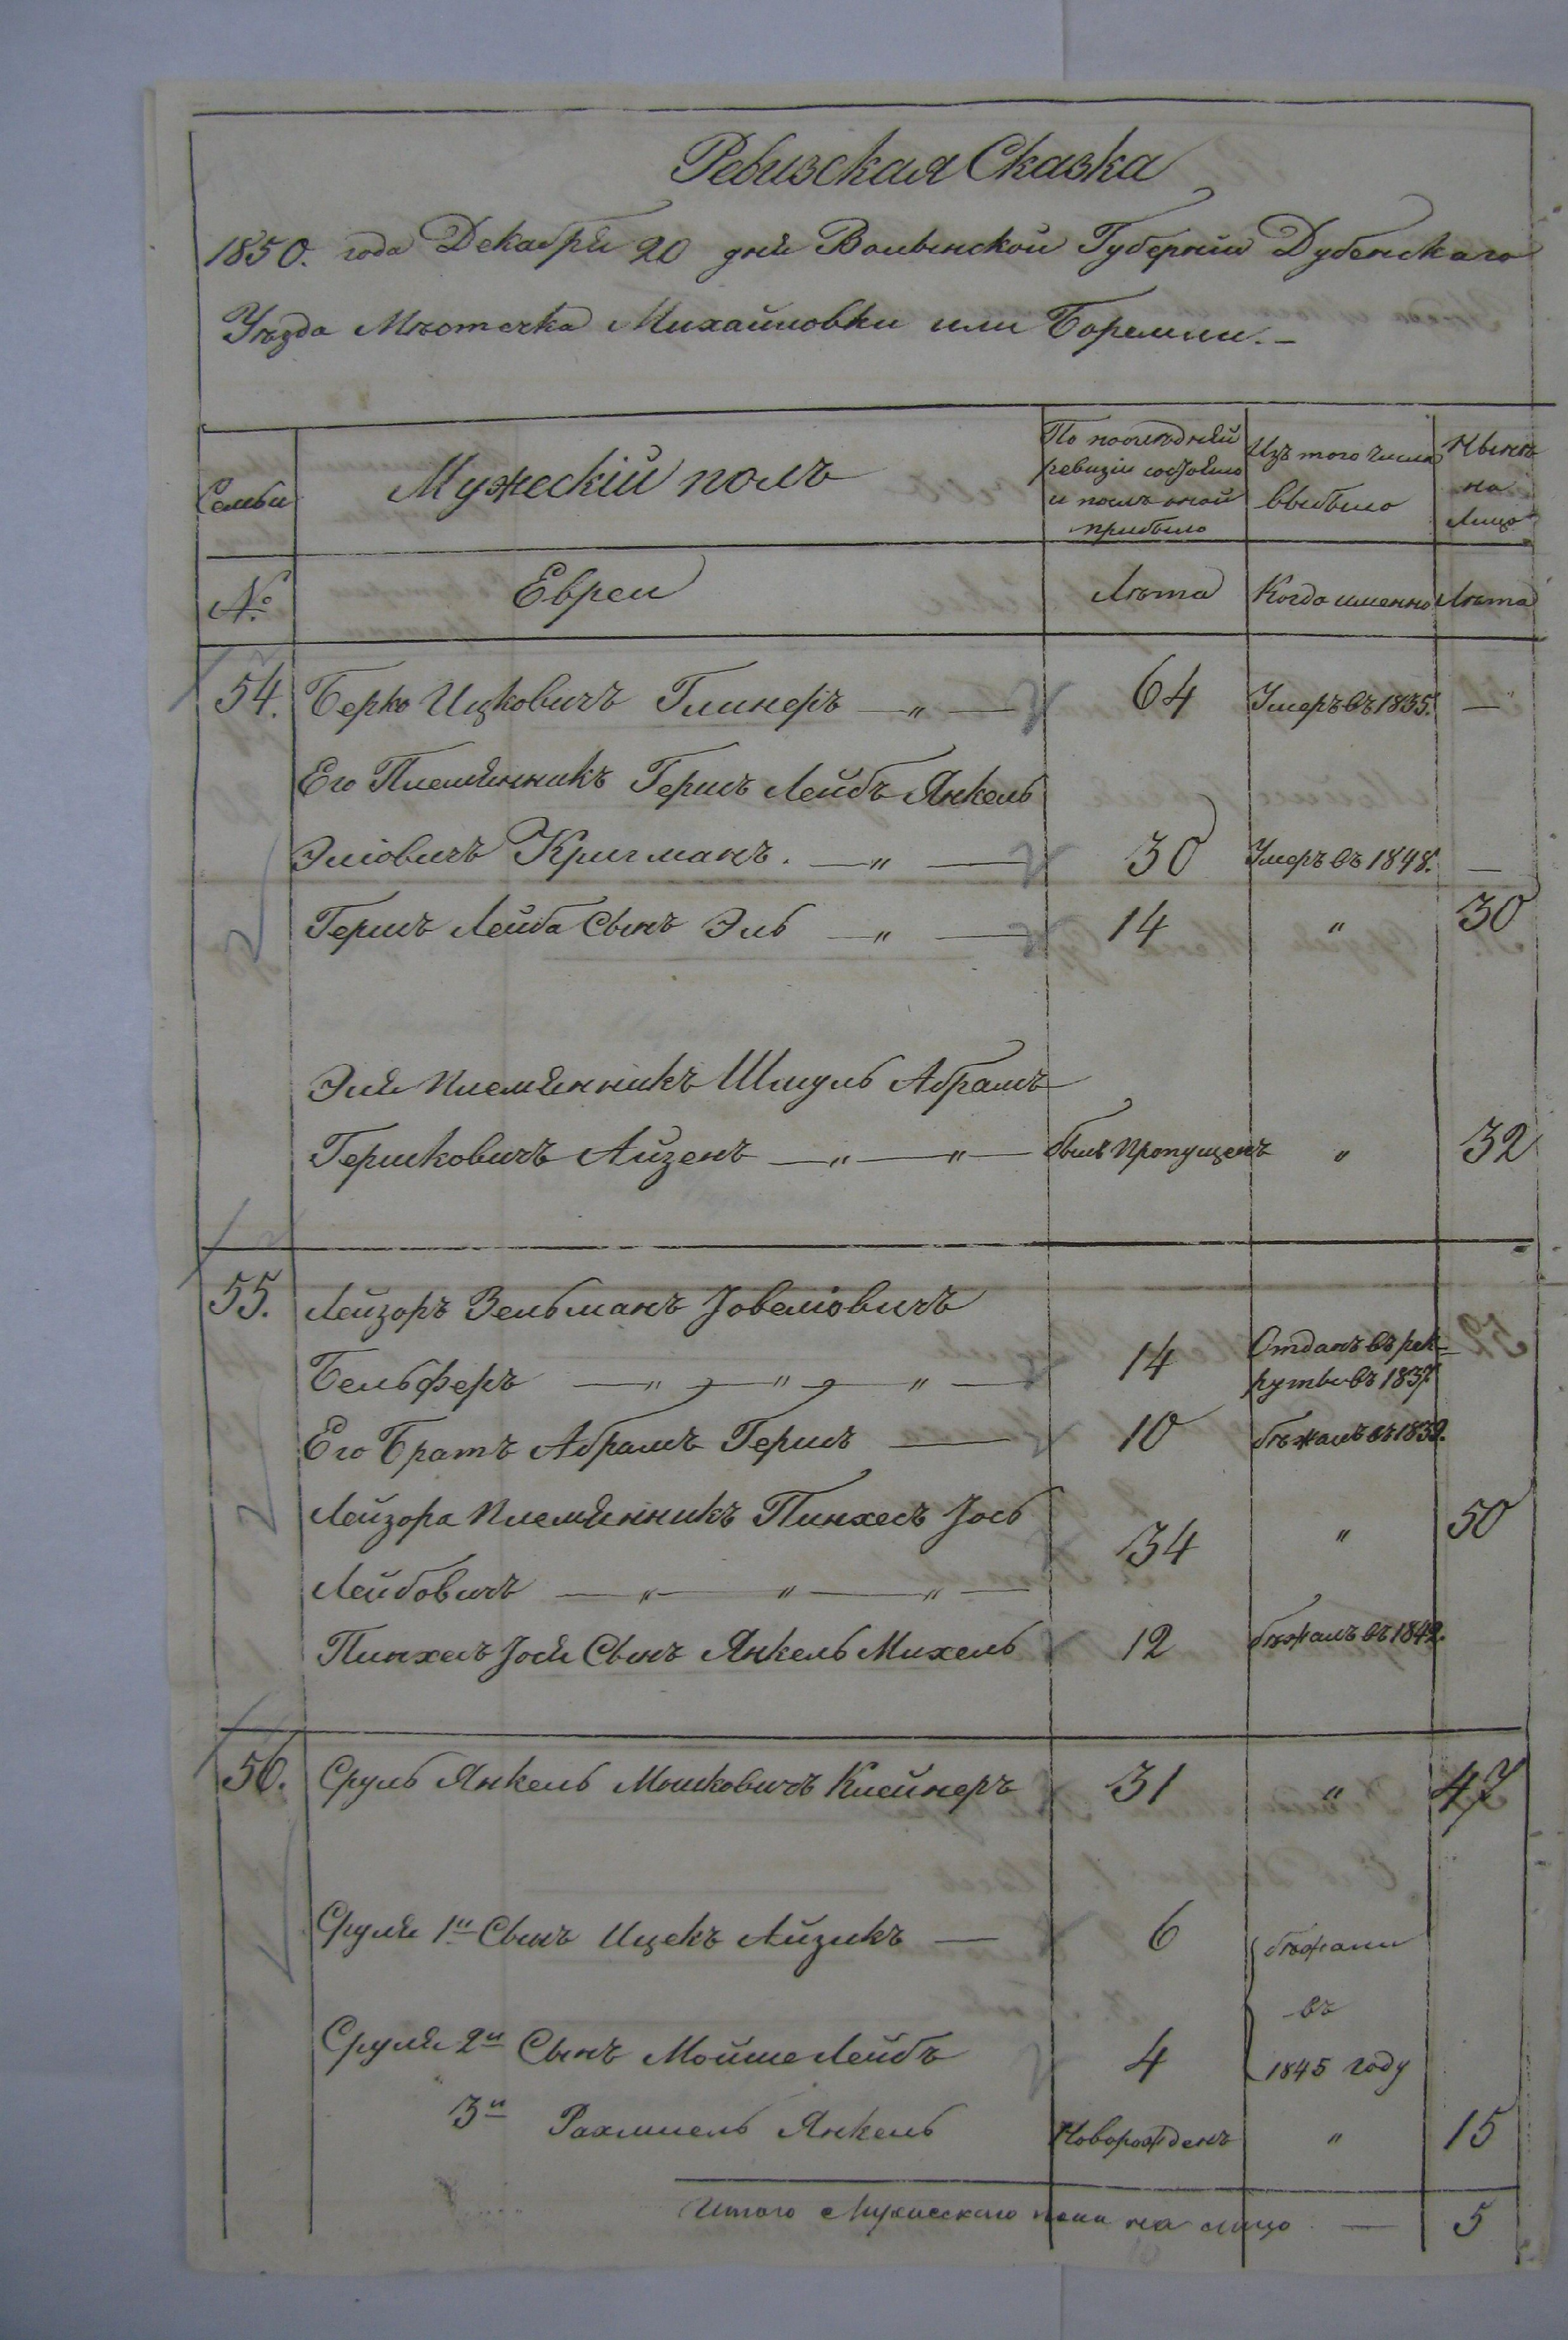 Ревизская Сказка
1850. года Декабря 20 дня Волынской Губернии Дубенскаго
Уѣзда Мѣстечка Михайловки или Боремли. –
Семьи
Мужескій полъ
По послѣдней
ревизіи состояло
и послѣ оной
прибыло
Изъ того числа
выбыло
Нынѣ
на
Лицо
№
Евреи
Лѣта
Когда именно
Лѣта
54. Берко Ицковичъ Глинеръ — „ — 64 Умеръ въ 1835. —
Его Племянникъ Гершъ Лейбъ Янкель
Эліовичъ Кригманъ. — „ — 30 Умеръ въ 1848. —
Гершъ Лейба Сынъ Эль — „ — 14 „ 30
Эля Племянникъ Шмуль Абрамъ
Гершковичъ Айзенъ — „ — „ — былъ пропущенъ „ 32
55. Лейзоръ Зельманъ Іовеліовичъ
Бельферъ — „ — „ — „ — 14 Отданъ въ рек-
руты въ 1837.
Его Братъ Абрамъ Гершъ — 10 бѣжалъ въ 1839.
Лейзора Племянникъ Пинхесъ Іось
Лейбовичъ — „ — „ — „ — 34 „ 50
Пинхесъ Іося Сынъ Янкель Михель 12 бѣжалъ въ 1842.
56. Сруль Янкель Мошковичъ Клейнеръ 31 „ 47
Сруля 1й Сынъ Ицекъ Айзикъ — 6 бѣжали
въ
Сруля 2й Сынъ Мойше Лейбъ 4 1845 году
3й Рахмиель Янкель Новорожденъ „ 15
Итого Мужескаго пола на лицо — 5